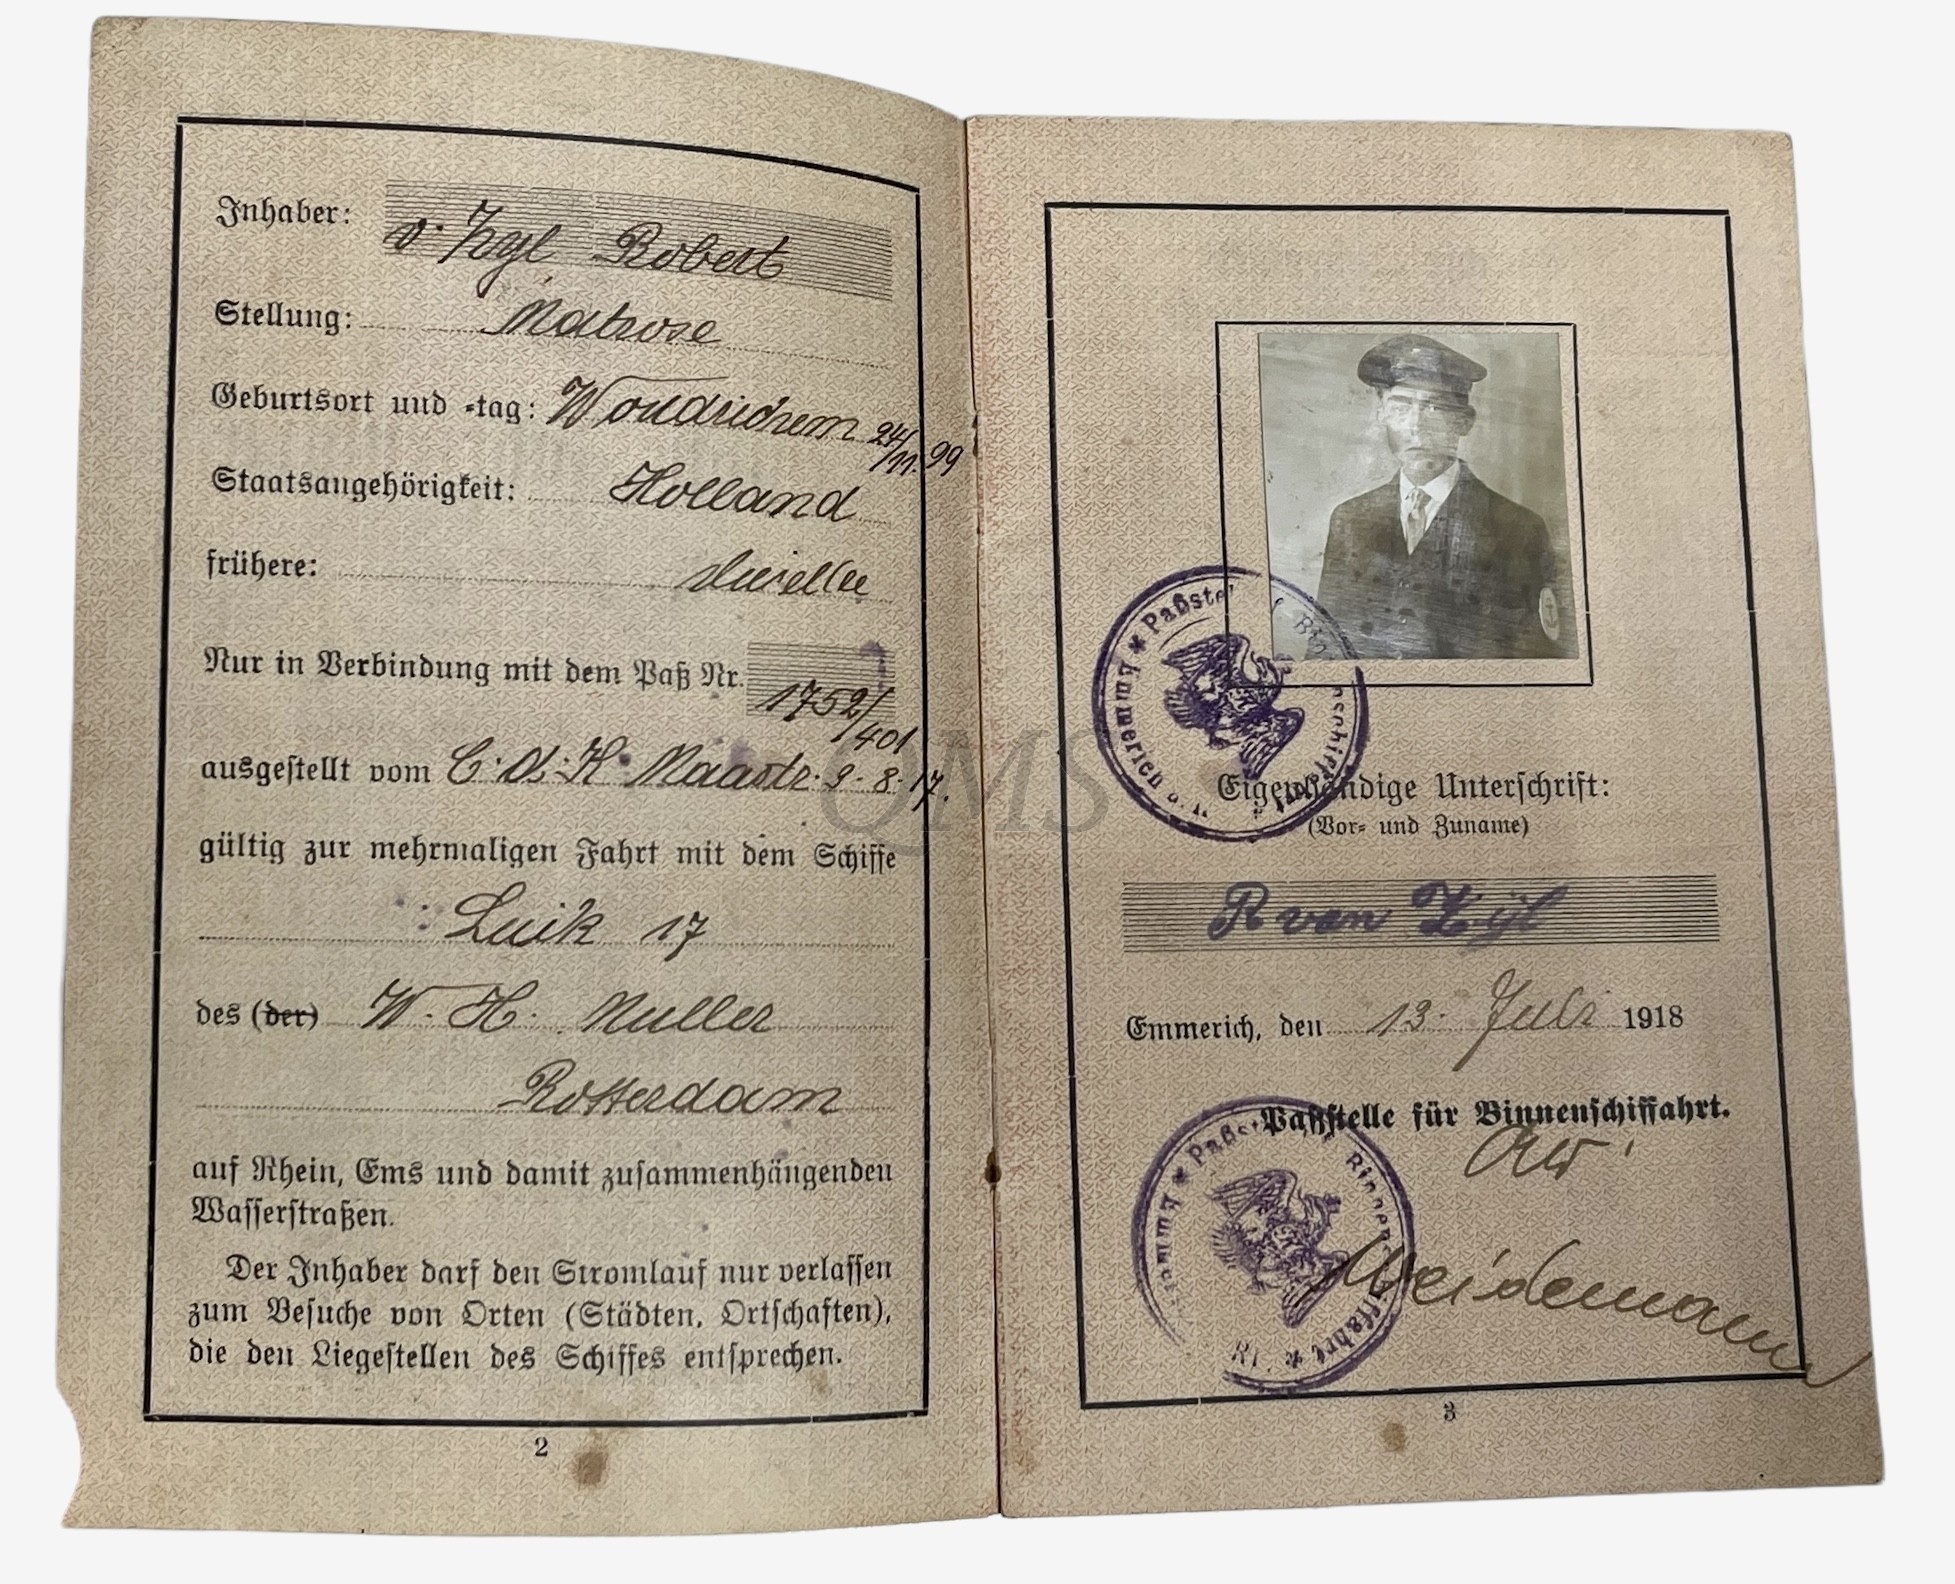 Inhaber: v. Zyl Robert
Stellung: Matrose
Geburtsort und -tag: Woudrichem 24/11.99
Staatsangehörigkeit: Holland
frühere: dieselbe
Nur in Verbindung mit dem Paß Nr. 1752/401
ausgestellt vom C. d. K. Maastr. 9-8-17.
gültig zur mehrmaligen Fahrt mit dem Schiffe
Luik 17
des (der) W. H. Muller
Rotterdam
auf Rhein, Ems und damit zusammenhängenden
Wasserstraßen.
Der Inhaber darf den Stromlauf nur verlassen
zum Besuche von Orten (Städten, Ortschaften),
die den Liegestellen des Schiffes entsprechen.
2
QMS
Eigenhändige Unterschrift:
(Vor- und Zuname)
R van Zijl
Emmerich, den 13. Juli 1918
Paßstelle für Binnenschiffahrt.
Weidemann
3